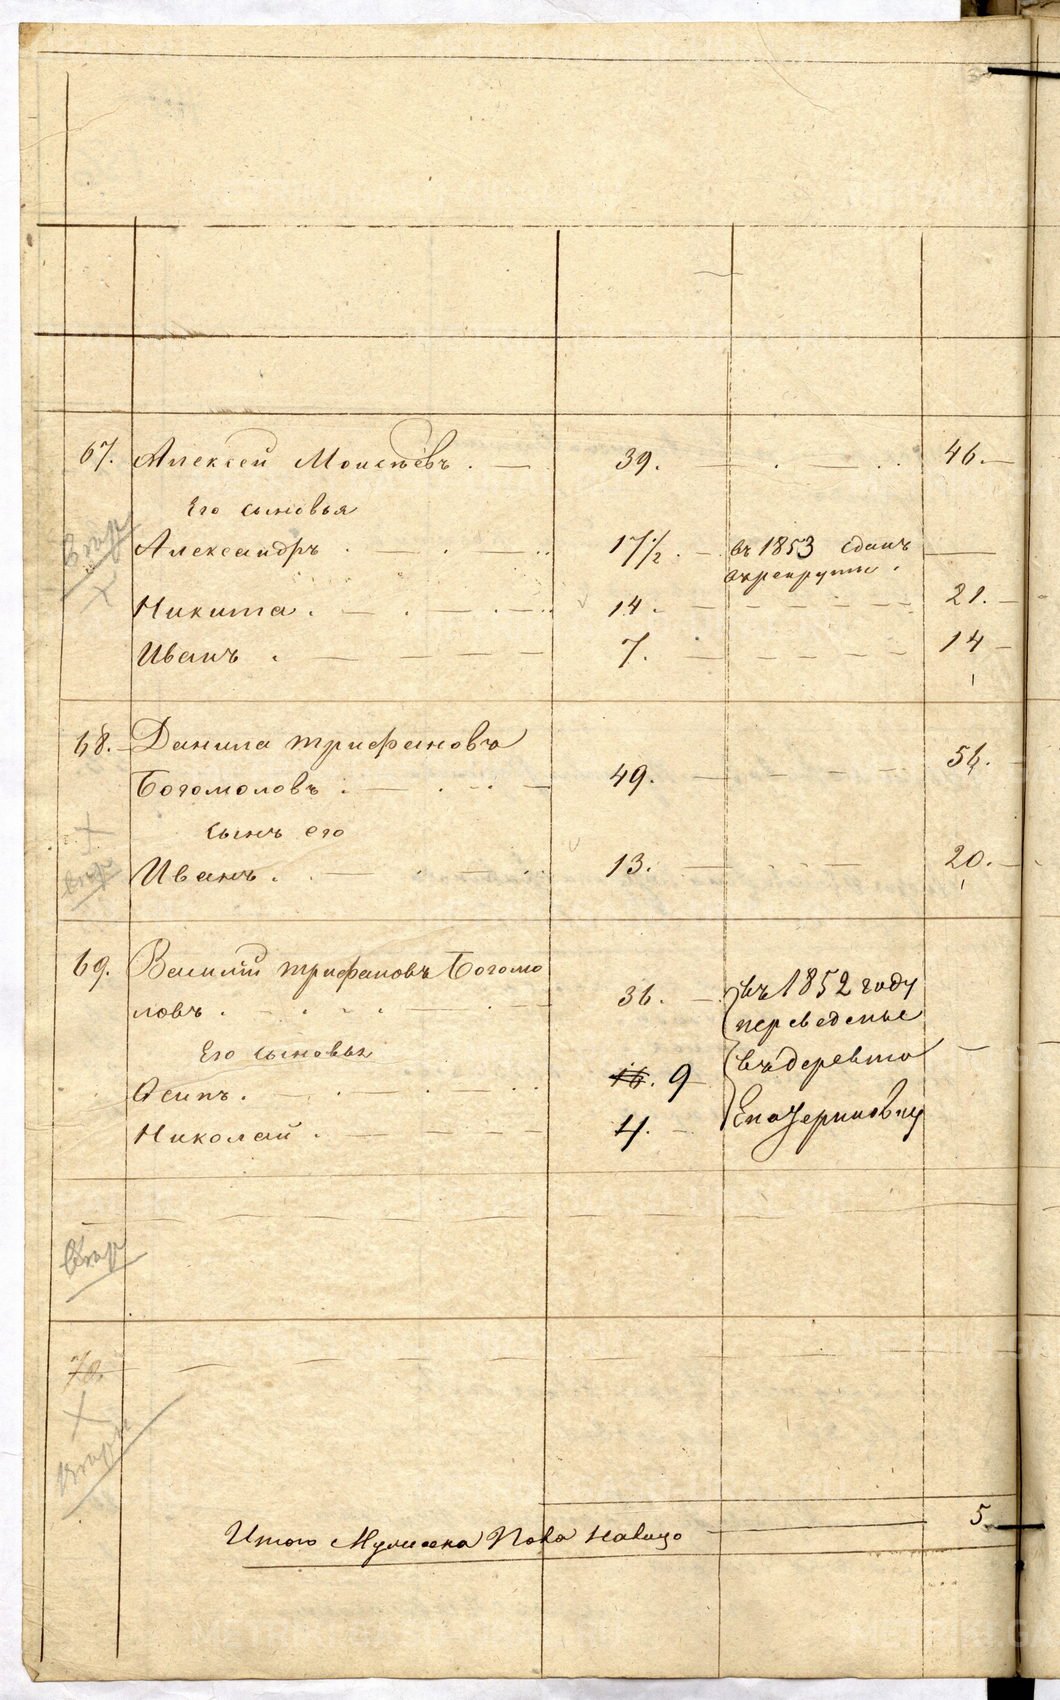 67. Алексей Моисѣевъ . — 39. — . — . . 46. —
Его сыновья
Александръ . — . — . . 17 1/2. — въ 1853 сданъ
врекруты .
Никита . — . — . — . . 14. — — — — — 21. —
Иванъ . — — — — 7. — — — — — 14 —
68. Данила трифановъ
Богомоловъ . — . — . — 49. — — — — 56. —
сынъ его
Иванъ . . — . — . . 13. — — . — 20. —
69. Василій трифановъ Богомо
ловъ . — . — . — . — 36. — въ 1852 году
переведены
Его сыновья
въ деревню —
Осипъ . — . — . — . . 16. 9
Екатериновку
Николай . — — — — 4. —
70.
Итого Мужеска Пола налицо — 5